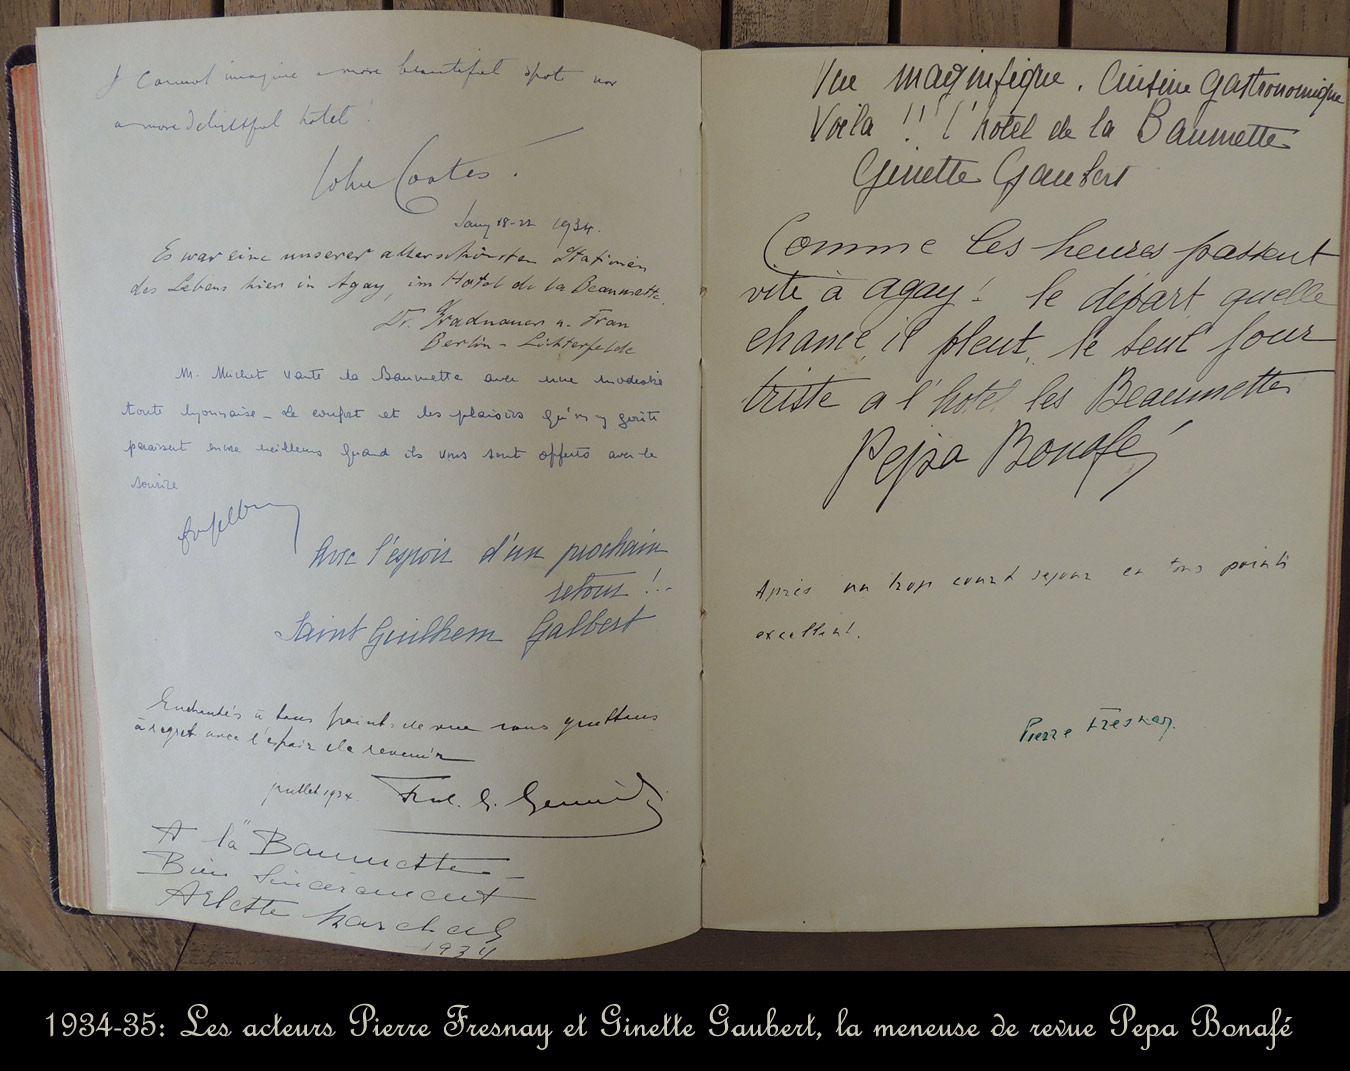 I cannot imagine a more beautiful spot nor
a more delightful hotel!
John Coates.
18-22 1934.
Es war eine unserer allerschönsten Stationen
des Lebens hier in Agay, im Hotel de la Beaumette.
Dr. Gradnauer u. Frau
Berlin - Lichterfelde
M. Michet vante la Baumette avec une modestie
toute lyonnaise - Le confort et les plaisirs qu'on y goûte
paraissent encore meilleurs quand ils vous sont offerts avec le
sourire
Avec l'espoir d'un prochain
retour !..
Saint Guilhem Galbert
Enchantés à tous points de vue nous quittons
à regret avec l'espoir de revenir
juillet 1934
A "la Baumette -
Bien sincèrement
Arlette Marchal
1934
Vue magnifique. Cuisine gastronomique
Voila !! l'hotel de la Baumette
Ginette Gaubert
Comme les heures passent
vite à agay! le départ quelle
chance il pleut, le seul jour
triste a l'hotel les Beaumettes
Pepa Bonafé
Après un trop court sejour en tous points
excellent.
Pierre Fresnay.
1934-35: Les acteurs Pierre Fresnay et Ginette Gaubert, la meneuse de revue Pepa Bonafé